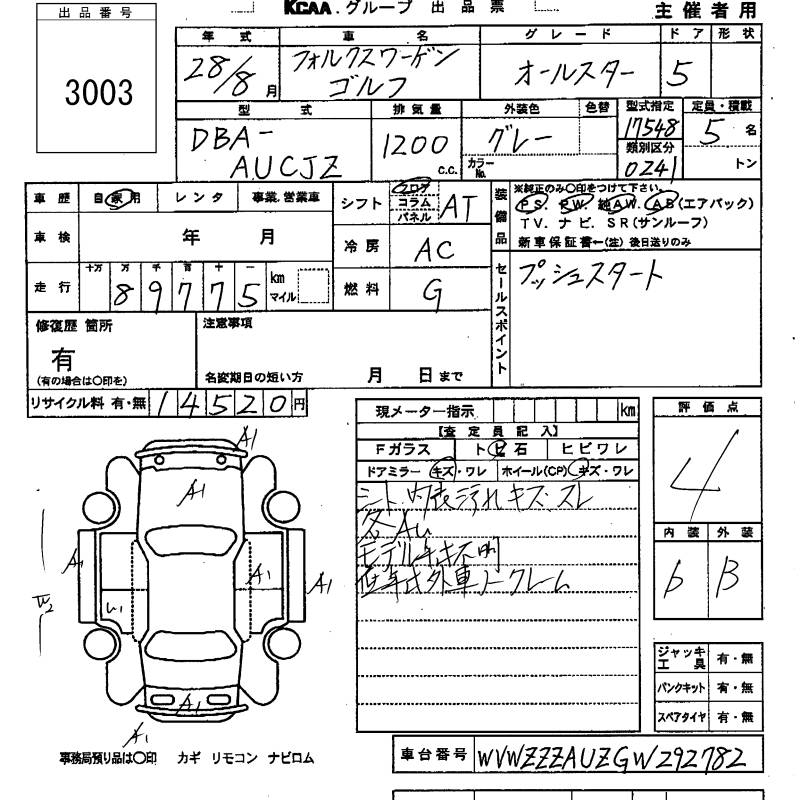 出品番号
3003
KCAA.グループ 出品票
主催者用
年式 車名 グレード ドア 形状
28/8月 フォルクスワーゲン ゴルフ オールスター 5
型式 排気量 外装色 色替 型式指定 定員・積載
DBA-AUCJZ 1200 c.c. グレー 17548 5名
カラーNo. 類別区分 0241 トン
車歴 自家用 レンタ 事業.営業車
シフト フロア コラム パネル AT
装備品 ※純正のみ〇印をつけて下さい。
PS. PW. 純AW. AB(エアバック)
TV. ナビ. SR(サンルーフ)
新車保証書-(注) 後日送りのみ
車検 年 月
冷房 AC
走行 十万 万 千 百 十 一
89775 km マイル
燃料 G
セールスポイント プッシュスタート
修復歴 箇所
有
(有の場合は〇印を)
注意事項
名変期日の短い方 月 日まで
リサイクル料 有・無 14520円
現メーター指示 km
【査定員記入】
Fガラス トビ石 ヒビワレ
ドアミラー キズ・ワレ ホイール(CP) キズ・ワレ
シート・内装汚れキズ・スレ
各AU
モデル年式不明
低年式外車ノークレーム
評価点
4
内装 外装
b B
A1
A1
A1
A1
A1
U1
W2
A1
A1
ジャッキ工具 有・無
パンクキット 有・無
スペアタイヤ 有・無
事務局預り品は〇印 カギ リモコン ナビロム
車台番号 WVWZZZAUZGW292782